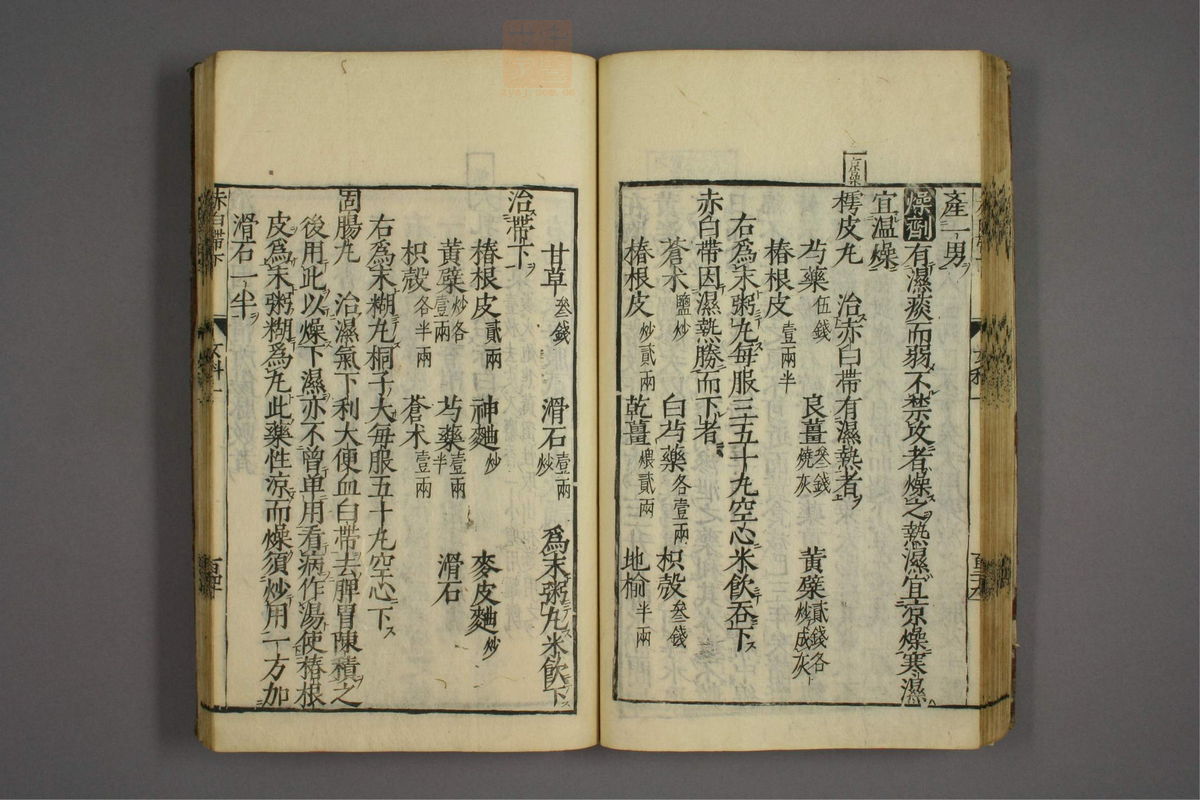 產一男
燥劑有濕痰而弱不禁攻者燥之熱濕宜涼燥寒濕
宜溫燥
樗皮丸 治赤白帶有濕熱者
芍藥伍錢 良薑叁錢燒灰 黃蘗貳錢各炒成灰
椿根皮壹兩半
右為末粥丸每服三五十丸空心米飲吞下
赤白帶因濕熱勝而下者
蒼术鹽炒 白芍藥各壹兩 枳殼叁錢
椿根皮炒貳兩 乾薑煨貳兩 地榆半兩
甘草叁錢 滑石壹兩炒 為末粥丸米飲下
治帶下
椿根皮貳兩 神麯炒 麥皮麯炒
黃蘗炒各壹兩 芍藥壹兩半 滑石
枳殼各半兩 蒼术壹兩
右為末糊丸桐子大每服五十丸空心下
固腸丸 治濕氣下利大便血白帶去脾胃陳積之
後用此以燥下濕亦不曾单用看病作湯使椿根
皮為末粥糊為丸此藥性涼而燥須炒用一方加
滑石一半
赤白帶下 女科一